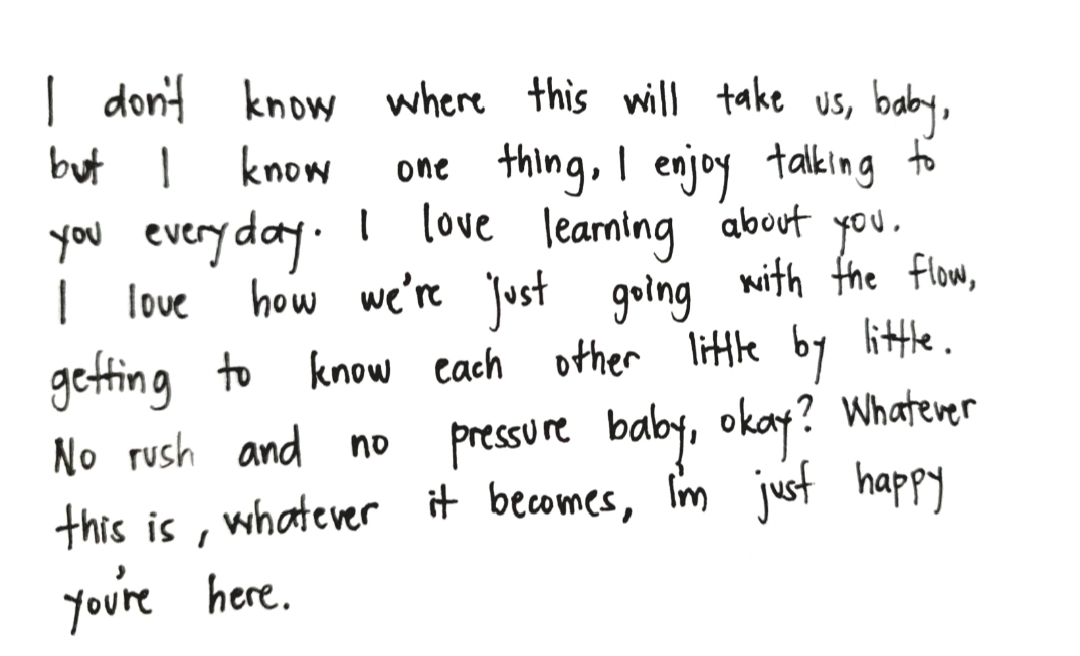 I don't know where this will take us, baby,
but I know one thing, I enjoy talking to
you everyday. I love learning about you.
I love how we're just going with the flow,
getting to know each other little by little.
No rush and no pressure baby, okay? Whatever
this is, whatever it becomes, I'm just happy
you're here.